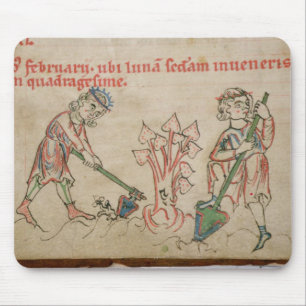 februarij. ubi lunã sc̃dam inveneris
n quadragesime.